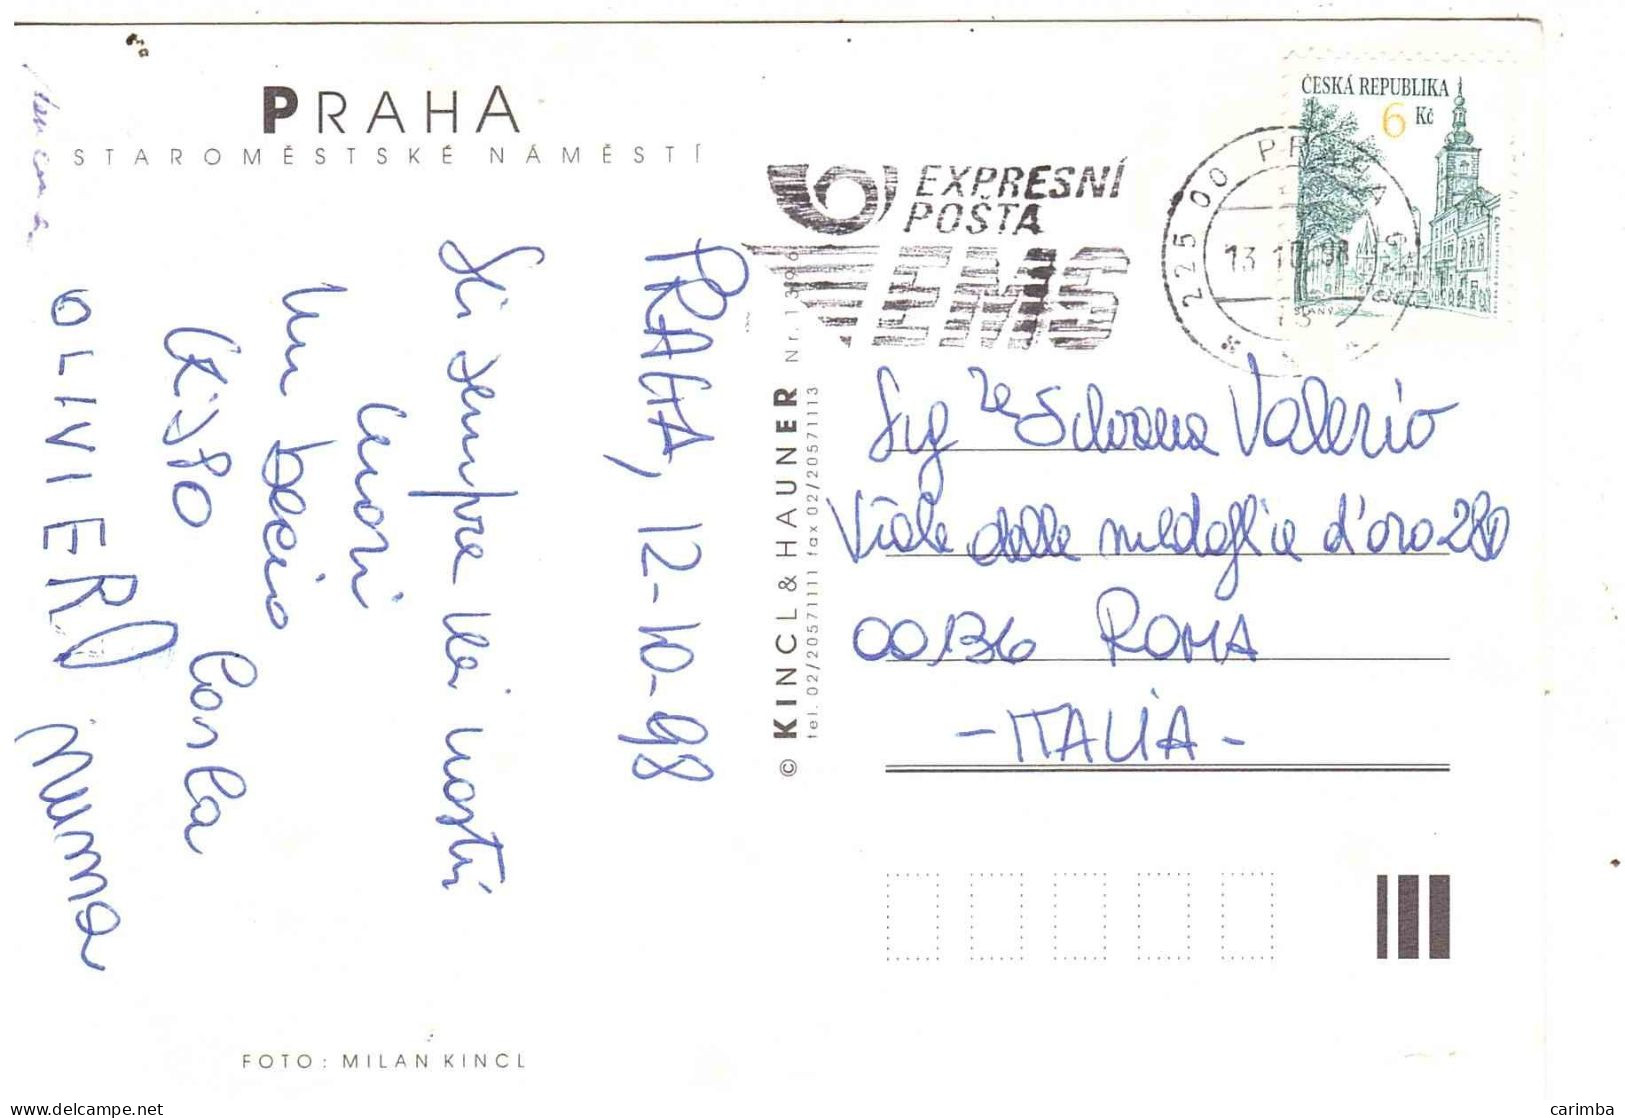 PRAHA
STAROMĚSTSKÉ NÁMĚSTÍ
PRAHA, 12-10-98
Sei sempre nei nostri
cuori
Un bacio
Carla
OLIVIERO
Mumma
FOTO: MILAN KINCL
© KINCL & HAUNER Nr. 1396
tel. 02/20571111 fax 02/20571113
EXPRESNÍ
POŠTA
EMS
225 00 PRAHA
13.10.98
ČESKÁ REPUBLIKA
6 Kč
SLANÝ
Sig re Silvana Valerio
Viale delle medaglie d'oro 280
00136 ROMA
-ITALIA-
carimba